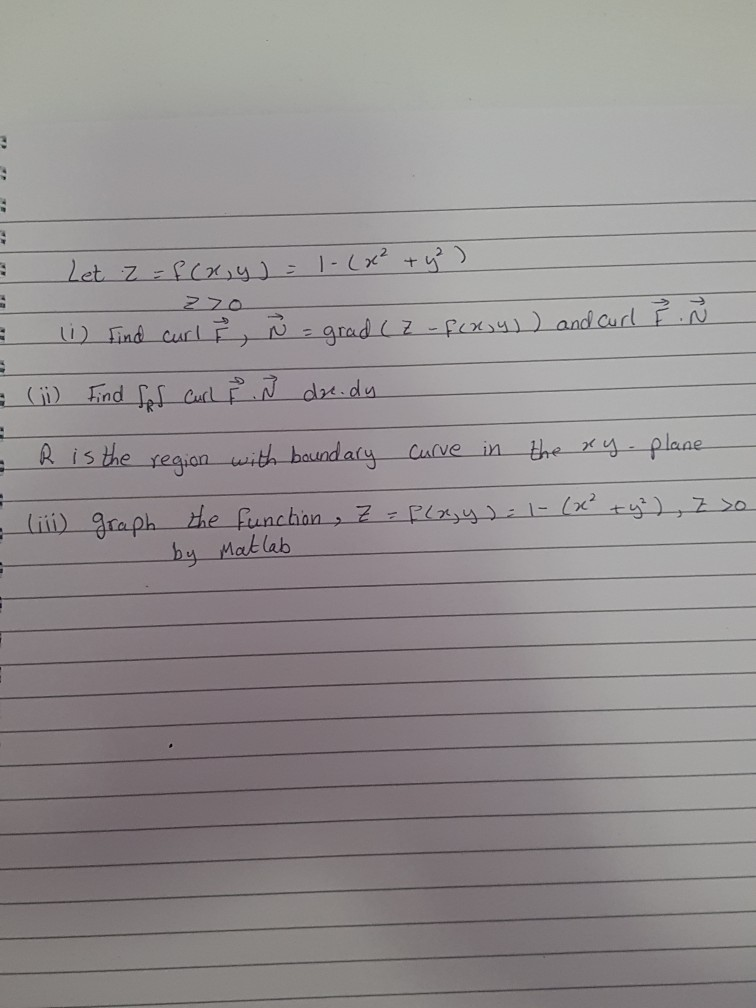 Let z = f(x,y) = 1-(x² + y²)
z>0
(i) Find curl F⃗, N⃗ = grad (z - f(x,y)) and curl F⃗.N⃗
(ii) Find ∫R∫ curl F⃗.N⃗ dx.dy
R is the region with boundary curve in the xy-plane
(iii) graph the function, z = f(x,y) = 1-(x² + y²), z>0
by Matlab